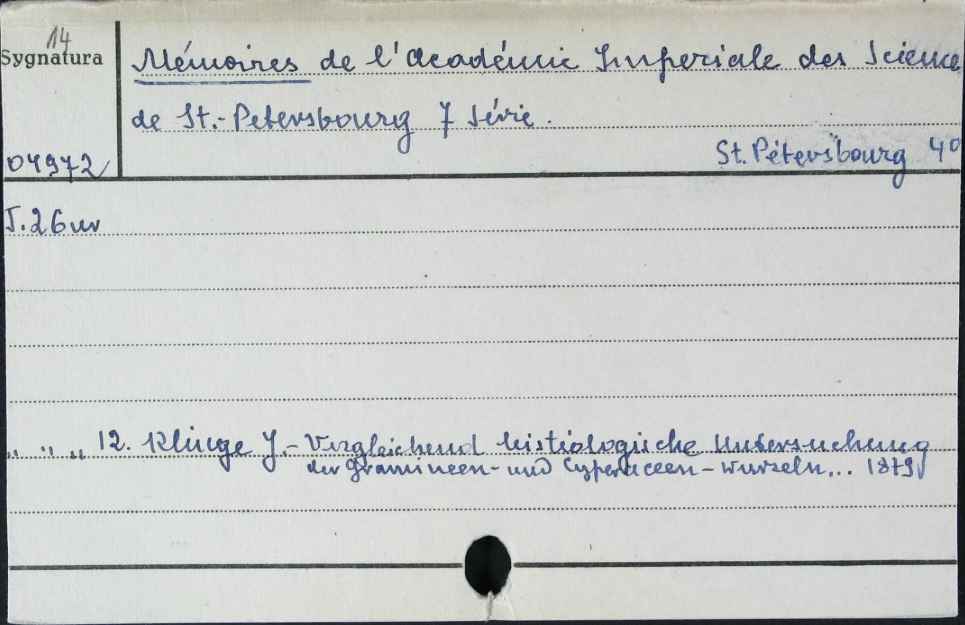 14
Sygnatura
Mémoires de l'Académie Imperiale des Science
de St.-Petersbourg 7 Série.
04972
St. Pétersbourg 4°
T. 26 nr
„ „ „ 12. Klinge J.- Vergleichend histiologische Untersuchung
der Gramineen- und Cyperaceen-wurzeln... 1879